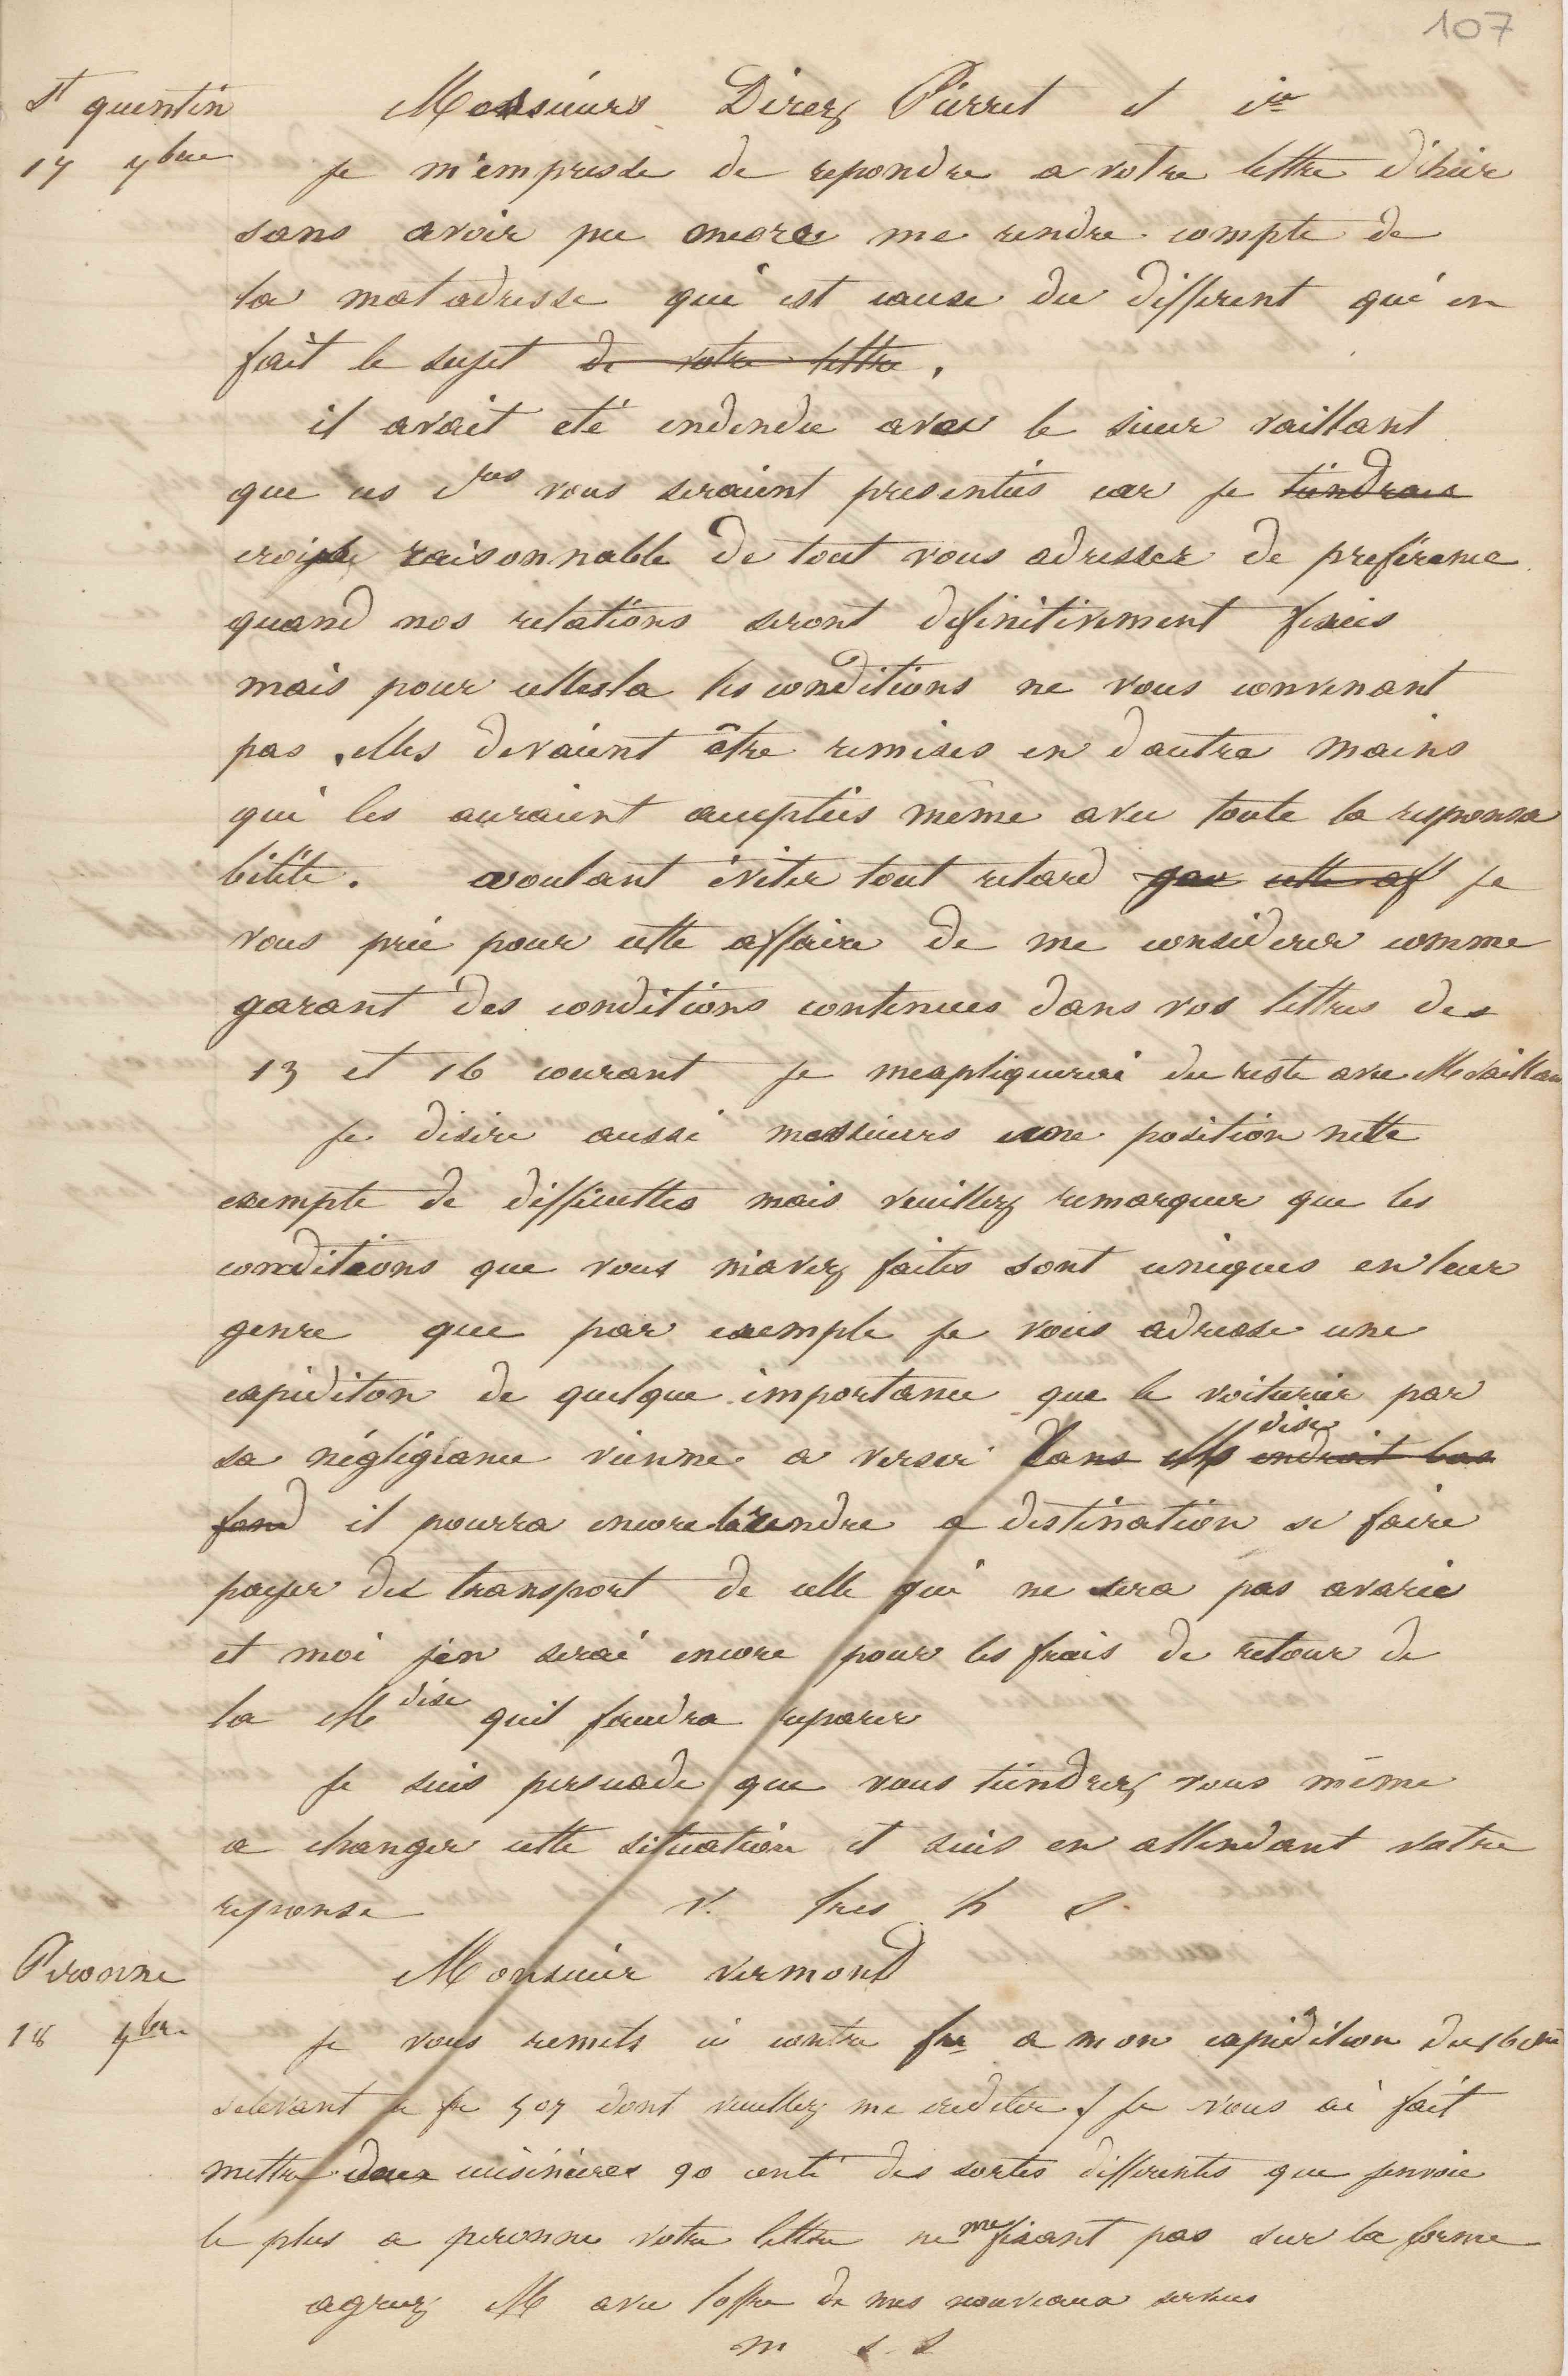 107
St quentin
Messieurs Direz Pierret et cie
17 9bre
Je m'empresse de repondre a votre lettre d'hier
sans avoir pu encore me rendre compte de
la maladresse qui est cause du different qui en
fait le sujet de votre lettre.
il avait eté endendu avec le sieur vaillant
que ces vous seraient presentées car je tiendrais
crois raisonnable de tout vous adresser de preférance
quand nos relations seront definitivement fixées
mais pour cellesla les conditions ne vous convenant
pas, elles devaient être remises en dautre mains
qui les auraient acceptées même avec toute la responsa
bilité. voulant éviter tout retard pour cette aff je
vous prie pour cette affaire de me considerer comme
garant des conditions contenues dans vos lettres des
13 et 16 courant je mexpliquerai du reste avec Mr vaillan
Je désire aussi messieurs une position nette
exempte de difficultes mais veuillez remarquer que les
conditions que vous m'avez faites sont uniques en leur
genre que par exemple je vous adresse une
expediton de quelque importance que le voiturier par
sa négligeance vienne a verser dans M dise endroit bas
fond il pourra encore la rendre a destination se faire
payer des transport de celle qui ne sera pas avarié
et moi jen serai encore pour les frais de retour de
la Mdise quil faudra reparer
Je suis persuade que vous tiendrez vous même
a changer cette situation et suis en attendant votre
reponse v. tres h s.
Peronne
Monsieur vermond
18 9bre
Je vous remets ci contre fre a mon expédition du 16 cnt
selevant a fr 507 dont veuillez me crediter. Je vous ai fait
mettre deux cuisinieres 90 centi des sortes differentes que jenvoie
le plus a peronne votre lettre ne me fixant pas sur la forme
agreez M avec loffre de mes nouveaux services
m s s